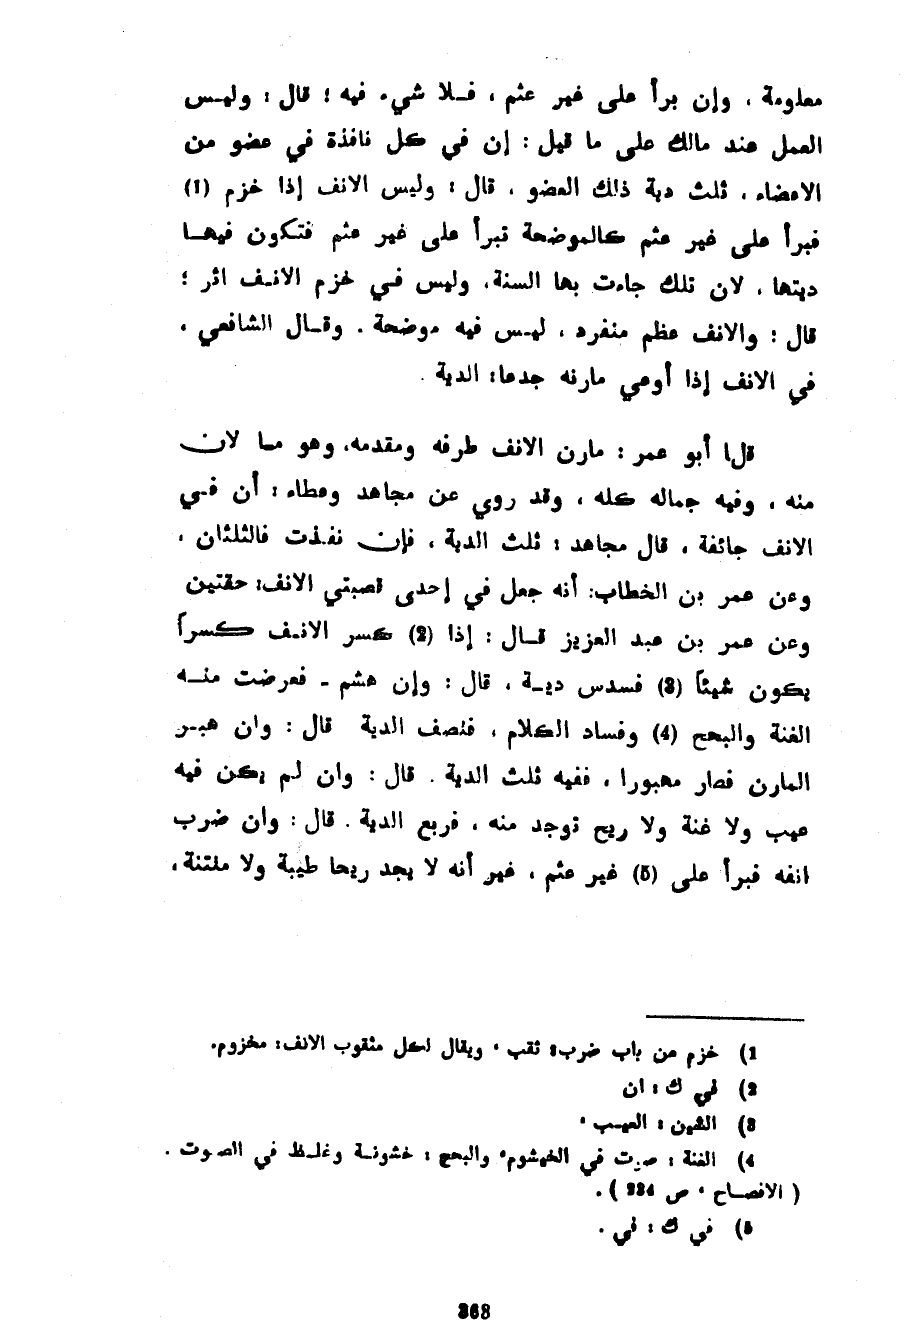 معلومة ، وإن برأ على غير عثم ، فــلا شيء فيه ؛ قال : وليـس
العمل عند مالك على ما قيل : إن في كل نافذة في عضو من
الاعضاء ، ثلث دية ذلك العضو ، قال : وليس الانف إذا خزم (1)
فبرأ على غير عثم كالموضحة تبرأ على غير عثم فتكون فيهــا
ديتها ، لان تلك جاءت بها السنة، وليس فـي خزم الانـف اثر ؛
قال : والانف عظم منفرد ، ليـس فيه موضحة . وقــال الشافعي ،
في الانف إذا أوعي مارنه جدعا: الدية .
قال أبو عمر : مارن الانف طرفه ومقدمه، وهو مـا لان
منه ، وفيه جماله كله ، وقد روي عن مجاهد وعطاء : أن فـي
الانف جائفة ، قال مجاهد : ثلث الدية ، فإن نفـذت فالثلثان ،
وعن عمر بن الخطاب: أنه جعل في إحدى قصبتي الانف: حقتين
وعن عمر بن عبد العزيز قــال : إذا (2) كسر الانـف كسراً
يكون شيناً (3) فسدس ديـة ، قال : وإن هشم ـ فعرضت منــه
الغنة والبحح (4) وفساد الكلام ، فنصف الدية قال : وان هبـر
المارن فصار مهبورا ، ففيه ثلث الدية . قال : وان لم يكن فيه
عيب ولا غنة ولا ريح توجد منه ، فربع الدية . قال : وان ضرب
انفه فبرأ على (5) غير عثم ، غير أنه لا يجد ريحا طيبة ولا منتنة،
1) خزم من باب ضرب: ثقب ، ويقال لكل مثقوب الانف: مخزوم.
2) في ك : ان
3) الشين : العيـب .
4) الغنة : صوت في الخيشوم، والبحح : خشونـة وغلـظ في الصـوت .
( الافصــاح ، ص 234 ) .
5) في ك : في .
368